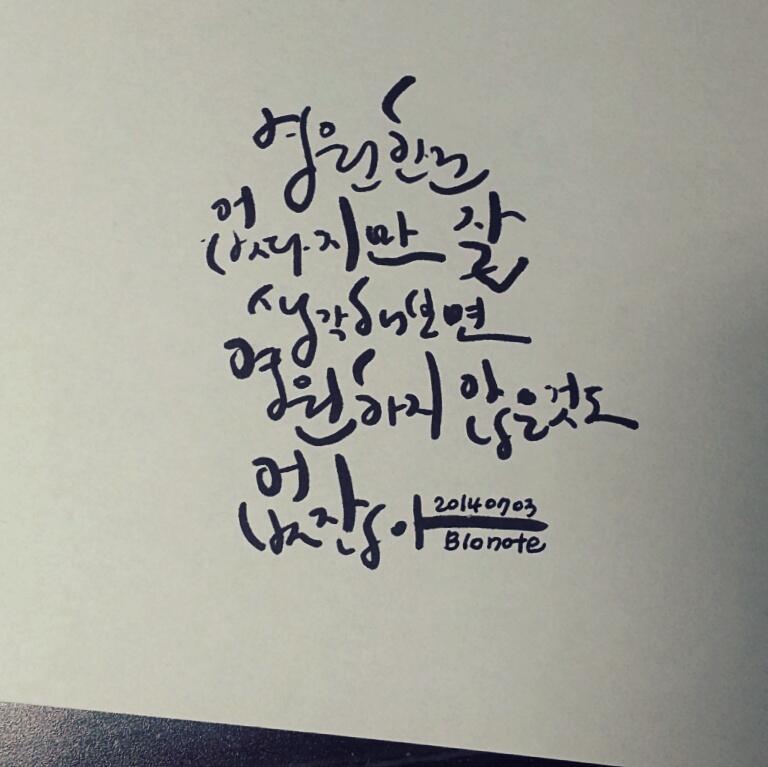 영원한건
없다지만 잘
생각해보면
영원하지 않을것도
없잖아
20140703
Blonote